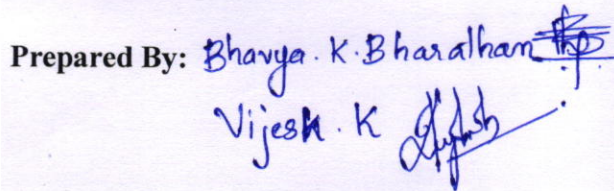 Prepared By: Bhavya. K. Bharathan
Vijesh. K